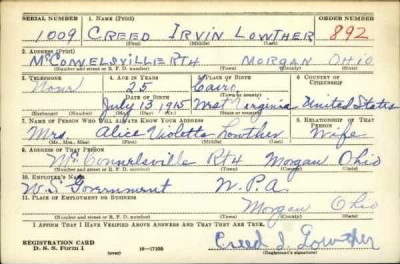 SERIAL NUMBER 1. NAME (Print) ORDER NUMBER
1009 CREED IRVIN LOWTHER 892
(First) (Middle) (Last)
2. ADDRESS (Print)
McCONNELSVILLE RT4 MORGAN OHIO
(Number and street or R. F. D. number) (Town) (County) (State)
3. TELEPHONE 4. AGE IN YEARS 5. PLACE OF BIRTH 6. COUNTRY OF CITIZENSHIP
None 25 Cairo
DATE OF BIRTH (Town or county)
July 13 1915 West Virginia United States
(Mo.) (Day) (Yr.) (State or country)
7. NAME OF PERSON WHO WILL ALWAYS KNOW YOUR ADDRESS 8. RELATIONSHIP OF THAT PERSON
Mrs. Alice Violetta Lowther Wife
(Mr., Mrs., Miss) (First) (Middle) (Last)
9. ADDRESS OF THAT PERSON
McConnelsville Rt 4 Morgan Ohio
(Number and street or R. F. D. number) (Town) (County) (State)
10. EMPLOYER'S NAME
U.S. Government W.P.A.
11. PLACE OF EMPLOYMENT OR BUSINESS
Morgan Ohio
(Number and street or R. F. D. number) (Town) (County) (State)
I AFFIRM THAT I HAVE VERIFIED ABOVE ANSWERS AND THAT THEY ARE TRUE.
REGISTRATION CARD
D. S. S. Form 1 (over) 16—17105 Creed I Lowther
(Registrant's signature)